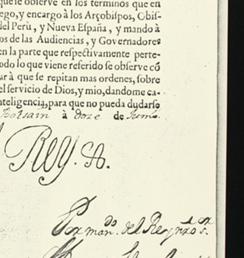 que se observe en los terminos que en
ego, y encargo à los Arçobispos, Obis-
del Perù, y Nueva España, y mando à
os de las Audiencias, y Governadores
en la parte que respectivamente perte-
odo lo que viene referido se observe cõ
ar à que se repitan mas ordenes, sobre
el servicio de Dios, y mio, dandome ca-
nteligencia, para que no pueda dudarse
à doze de Junio
Rey.
Por man.do del Rey nro s.r